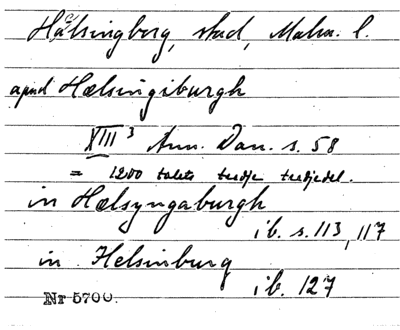 Hälsingborg, stad, Malm. l.
apud Hælsingiburgh
XIII 3 Ann. Dan. s. 58
= 1200 talets tredje tredjedel.
in Hælsyngaburgh
ib. s. 113, 117
in Helsinburg
ib. 127
Nr 5700.